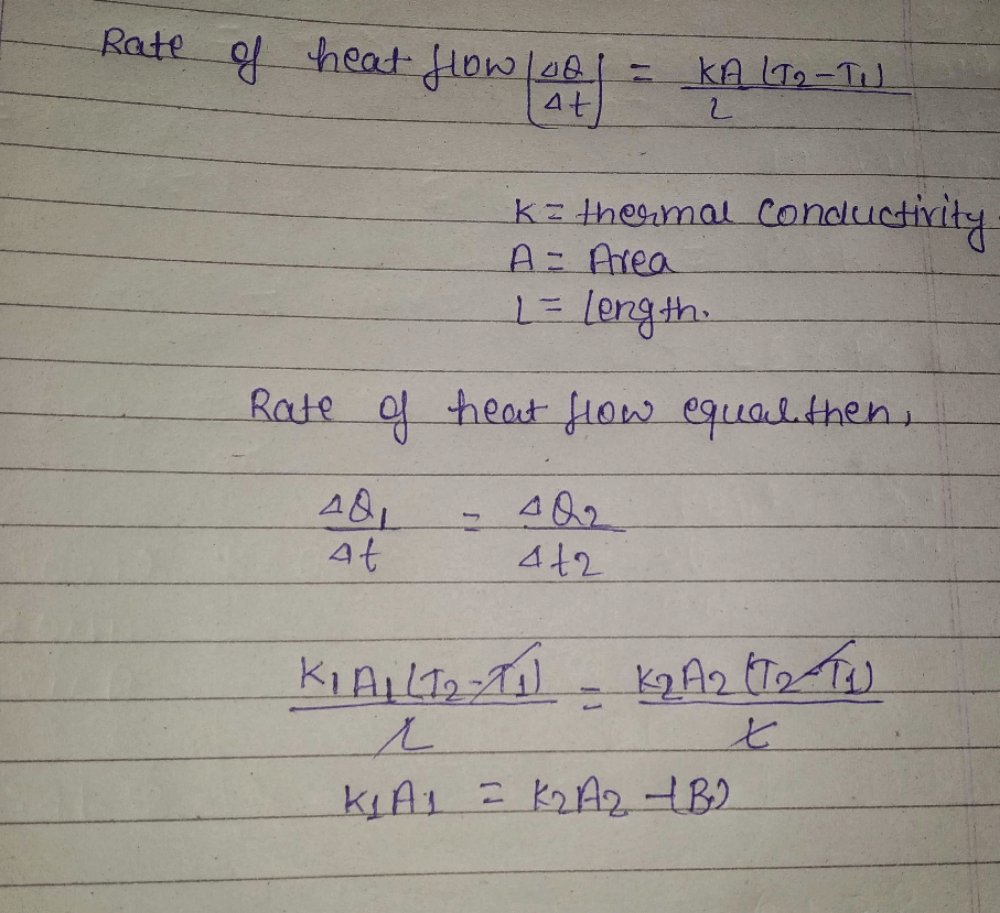 Rate of heat flow (ΔQ/Δt) = KA (T2-T1)/l
K = thermal conductivity
A = Area
l = length.
Rate of heat flow equal then,
ΔQ1/Δt = ΔQ2/Δt2
K1A1(T2-T1)/l = K2A2(T2-T1)/l
K1A1 = K2A2 -(B)